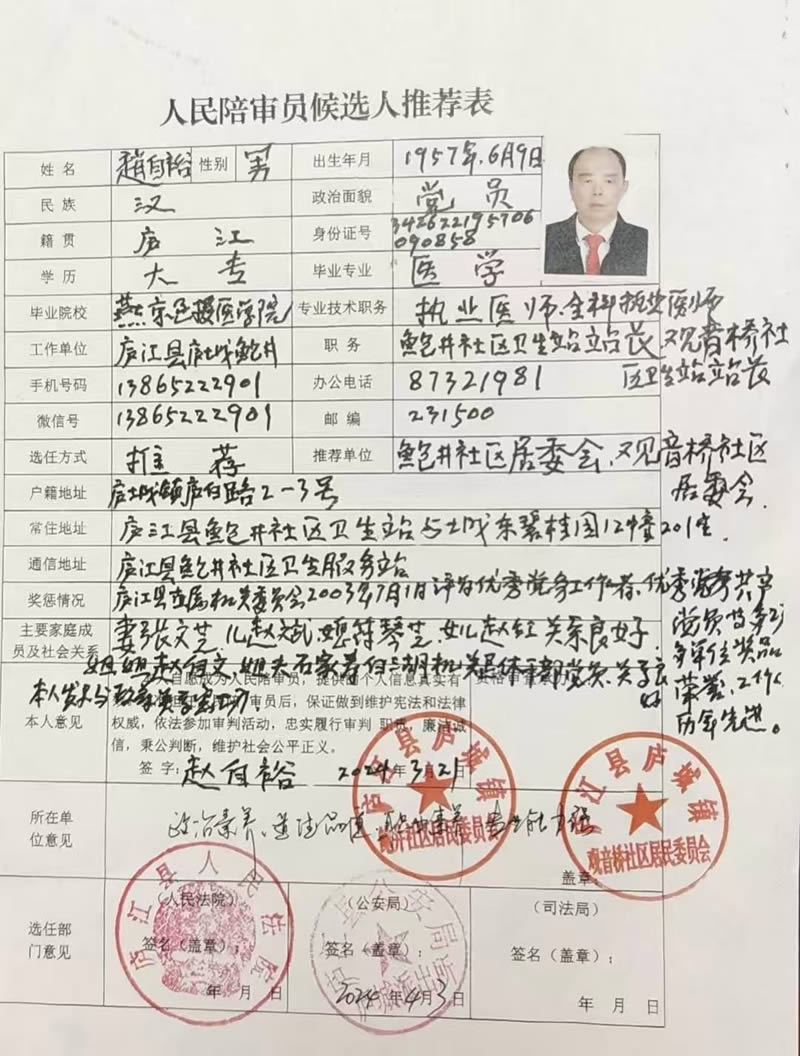 人民陪审员候选人推荐表
姓名 赵自裕 性别 男 出生年月 1957年.6月9日
民族 汉 政治面貌 党员
籍贯 庐江 身份证号 342622195706
090858
学历 大专 毕业专业 医学
毕业院校 医学院 专业技术职务 执业医师、全科执业医师
工作单位 庐江县庐城鲍井 职务 鲍井社区卫生站站长、观音桥社
区卫生站站长
手机号码 13865222901 办公电话 87321981
微信号 13865222901 邮编 231500
选任方式 推荐 推荐单位 鲍井社区居委会、观音桥社区
居委会
户籍地址 庐城镇庐白路2-3号
常住地址 庐江县鲍井社区卫生站 城东碧桂园12幢201室
通信地址 庐江县鲍井社区卫生服务站
奖惩情况 庐江县直属机关委员会2003年7月1日评为优秀党务工作者、优秀党务共产
党员
荣誉、工作
历年先进。
主要家庭成
员及社会关系 妻 张文芝 儿 赵斌、媳 符琴芝、女儿 赵红 关系良好.
姐姐 赵 姐夫 石家
好
本人意见 自愿成为人民陪审员，提供的个人信息真实有
审员后，保证做到维护宪法和法律
权威，依法参加审判活动，忠实履行审判 职责，廉洁诚
信，秉公判断，维护社会公平正义。
签字：赵自裕 2024年3月21日
所在单
位意见 政治素养、道德品德、 专业能力强
庐江县庐城镇
鲍井社区居民委员会
庐江县庐城镇
观音桥社区居民委员会
盖章：
选任部
门意见
（人民法院） （公安局） （司法局）
庐江县人民法院
庐江县公安局
签名（盖章）： 签名（盖章）： 签名（盖章）：
年 月 日 2024年4月3日 年 月 日